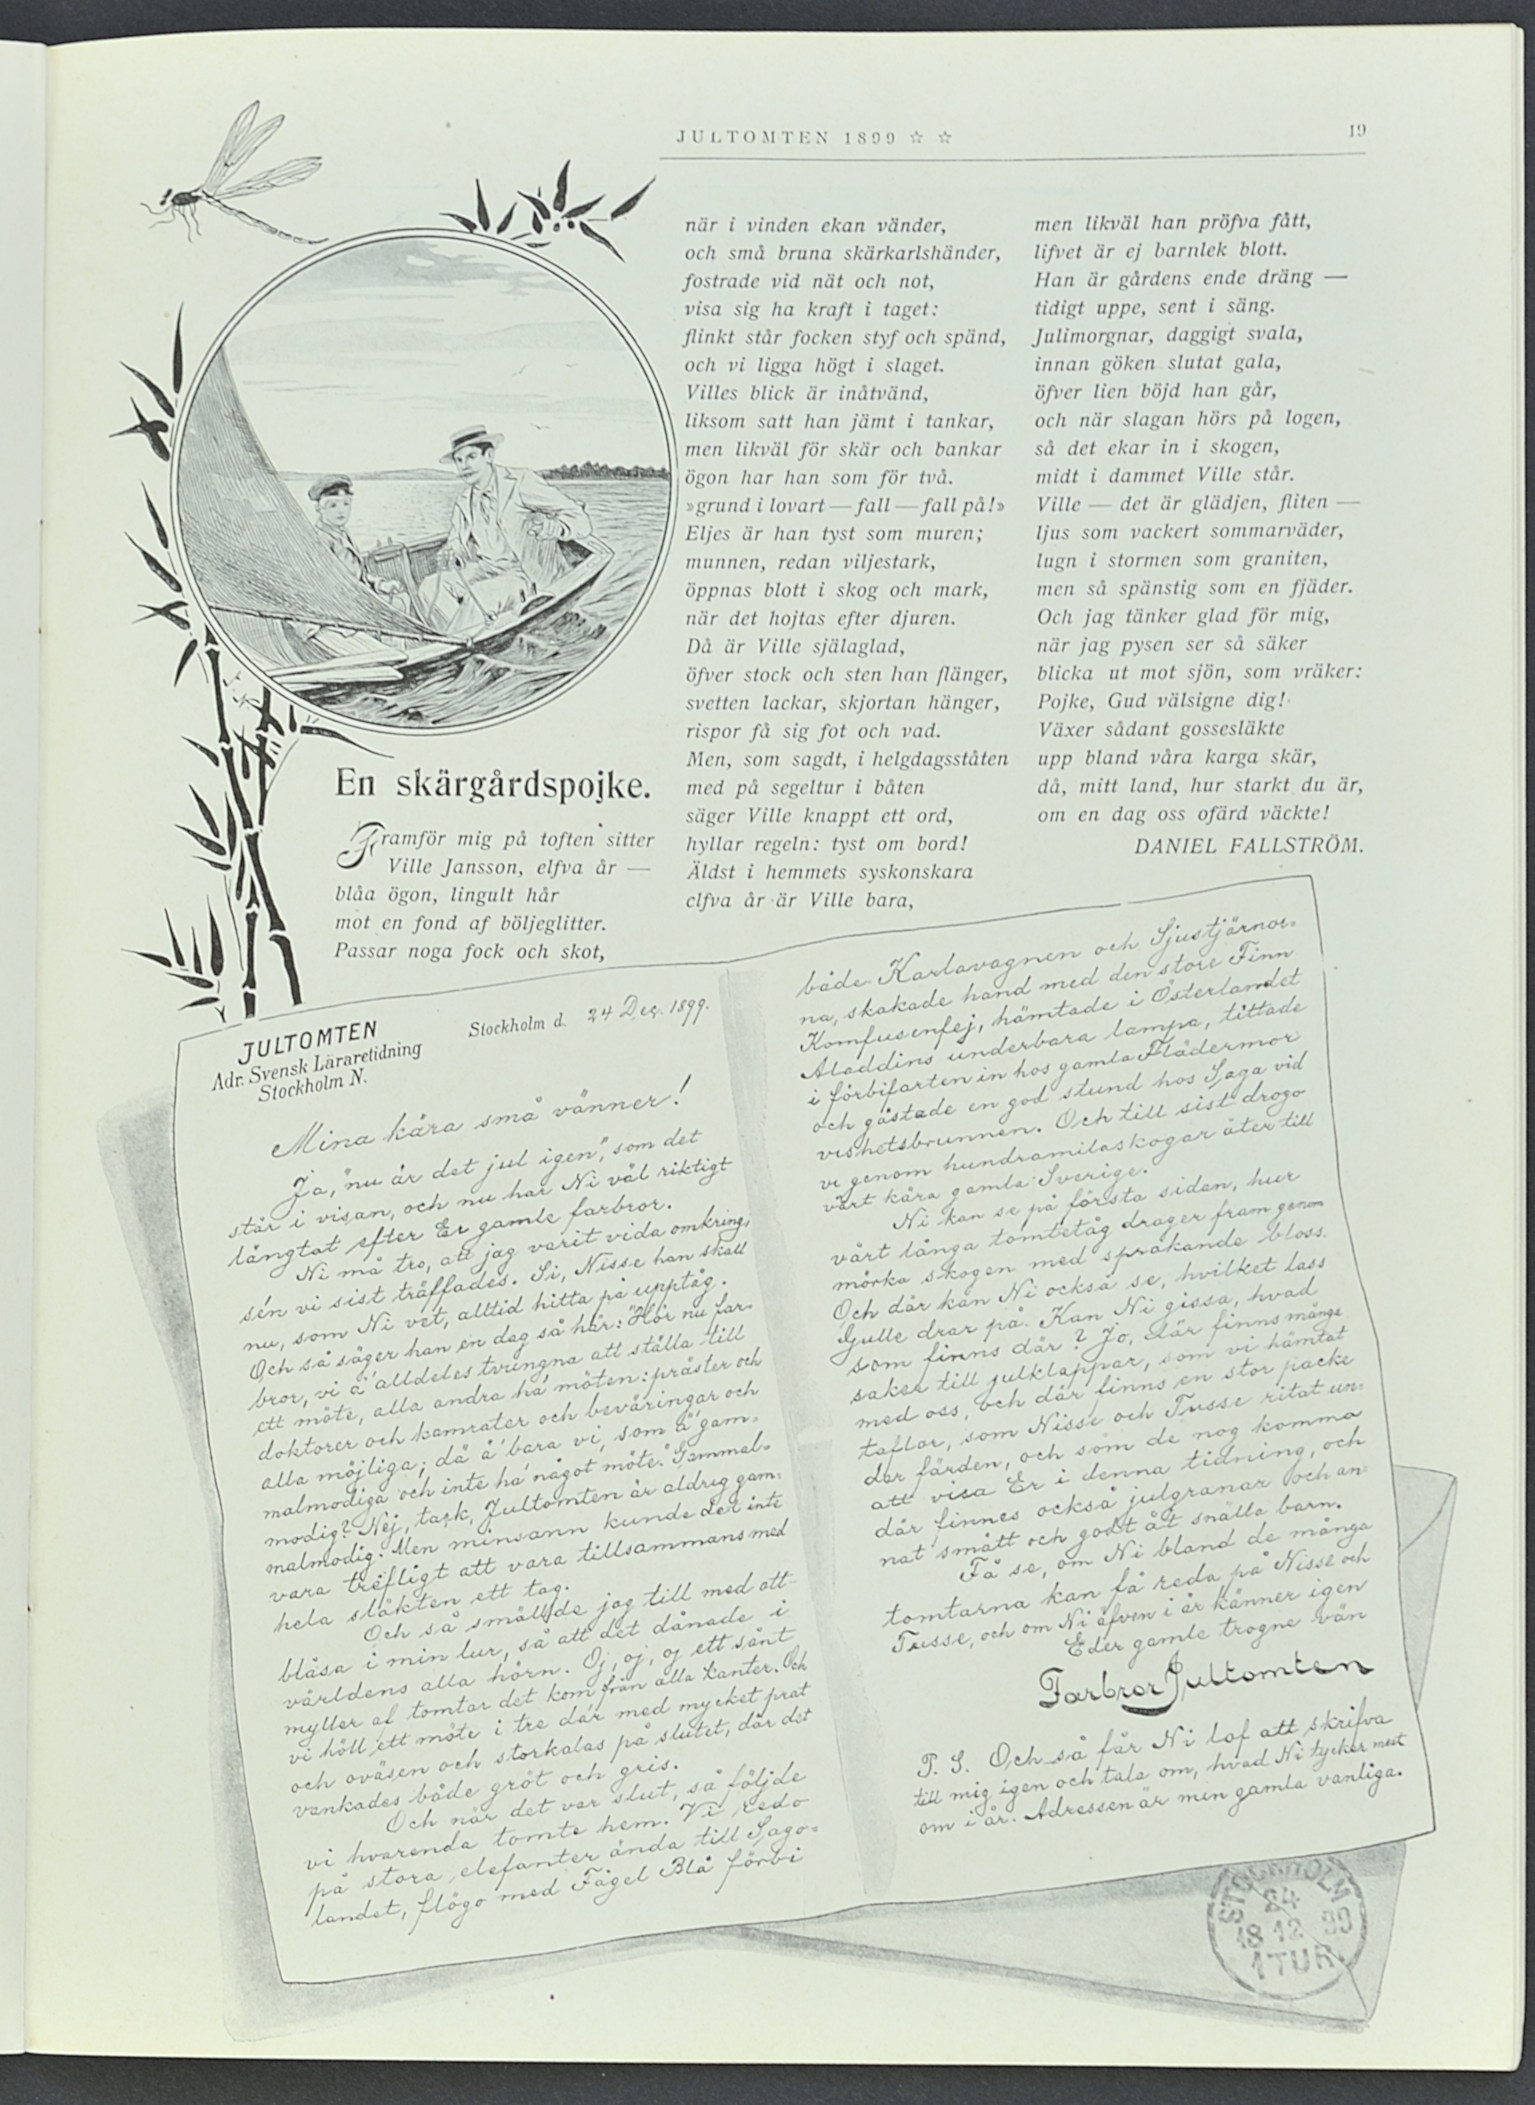 JULTOMTEN 1899 ☆ ☆
19
En skärgårdspojke.
Framför mig på toften sitter
Ville Jansson, elfva år —
blåa ögon, lingult hår
mot en fond af böljeglitter.
Passar noga fock och skot,
när i vinden ekan vänder,
och små bruna skärkarlshänder,
fostrade vid nät och not,
visa sig ha kraft i taget:
flinkt står focken styf och spänd,
och vi ligga högt i slaget.
Villes blick är inåtvänd,
liksom satt han jämt i tankar,
men likväl för skär och bankar
ögon har han som för två.
»grund i lovart — fall — fall på!»
Eljes är han tyst som muren;
munnen, redan viljestark,
öppnas blott i skog och mark,
när det hojtas efter djuren.
Då är Ville själaglad,
öfver stock och sten han flänger,
svetten lackar, skjortan hänger,
rispor få sig fot och vad.
Men, som sagdt, i helgdagsståten
med på segeltur i båten
säger Ville knappt ett ord,
hyllar regeln: tyst om bord!
Äldst i hemmets syskonskara
elfva år är Ville bara,
men likväl han pröfva fått,
lifvet är ej barnlek blott.
Han är gårdens ende dräng —
tidigt uppe, sent i säng.
Julimorgnar, daggigt svala,
innan göken slutat gala,
öfver lien böjd han går,
och när slagan hörs på logen,
så det ekar in i skogen,
midt i dammet Ville står.
Ville — det är glädjen, fliten —
ljus som vackert sommarväder,
lugn i stormen som graniten,
men så spänstig som en fjäder.
Och jag tänker glad för mig,
när jag pysen ser så säker
blicka ut mot sjön, som vräker:
Pojke, Gud välsigne dig!
Växer sådant gossesläkte
upp bland våra karga skär,
då, mitt land, hur starkt du är,
om en dag oss ofärd väckte!
DANIEL FALLSTRÖM.
JULTOMTEN
Adr. Svensk Läraretidning
Stockholm N.
Stockholm d. 24 Dec. 1899.
Mina kära små vänner!
Ja, "nu är det jul igen", som det
står i visan, och nu har Ni väl riktigt
längtat efter Er gamle farbror.
Ni må tro, att jag varit vida omkring,
sén vi sist träffades. Si, Nisse han skall
nu, som Ni vet, alltid hitta på upptåg.
Och så säger han en dag så här: "Hör nu far-
bror, vi ä' alldeles tvungna att ställa till
ett möte, alla andra ha' möten: präster och
doktorer och kamrater och beväringar och
alla möjliga; då ä' bara vi, som ä' gam-
malmodiga och inte ha' något möte." Gammal-
modig? Nej, tack, Jultomten är aldrig gam-
malmodig. Men minsann kunde det inte
vara trefligt att vara tillsammans med
hela släkten ett tag.
Och så smällde jag till med att
blåsa i min lur, så att det dånade i
världens alla hörn. Oj, oj, oj ett sånt
myller af tomtar det kom från alla kanter. Och
vi höll ett möte i tre da'r med mycket prat
och oväsen och storkalas på slutet, där det
vankades både gröt och gris.
Och när det var slut, så följde
vi hvarenda tomte hem. Vi redo
på stora elefanter ända till Sago-
landet, flögo med Fågel Blå förbi
både Karlavagnen och Sjustjärnor-
na, skakade hand med den store Finn
Komfusenfej, hämtade i Österlandet
Aladdins underbara lampa, tittade
i förbifarten in hos gamla Flädermor
och gästade en god stund hos Saga vid
vishetsbrunnen. Och till sist drogo
vi genom hundramilaskogar åter till
vårt kära gamla Sverige.
Ni kan se på första sidan, hur
vårt långa tomtetåg drager fram genom
mörka skogen med sprakande bloss.
Och där kan Ni också se, hvilket lass
Gulle drar på. Kan Ni gissa, hvad
som finns där? Jo, där finns många
saker till julklappar, som vi hämtat
med oss, och där finns en stor packe
taflor, som Nisse och Tusse ritat un-
der färden, och som de nog komma
att visa Er i denna tidning, och
där finnes också julgranar och an-
nat smått och godt åt snälla barn.
Få se, om Ni bland de många
tomtarna kan få reda på Nisse och
Tusse, och om Ni äfven i år känner igen
Eder gamle trogne vän
Farbror Jultomten
P. S. Och så får Ni lof att skrifva
till mig igen och tala om, hvad Ni tycker mest
om i år. Adressen är min gamla vanliga.
STOCKHOLM
24
18 12 99
1 TUR.